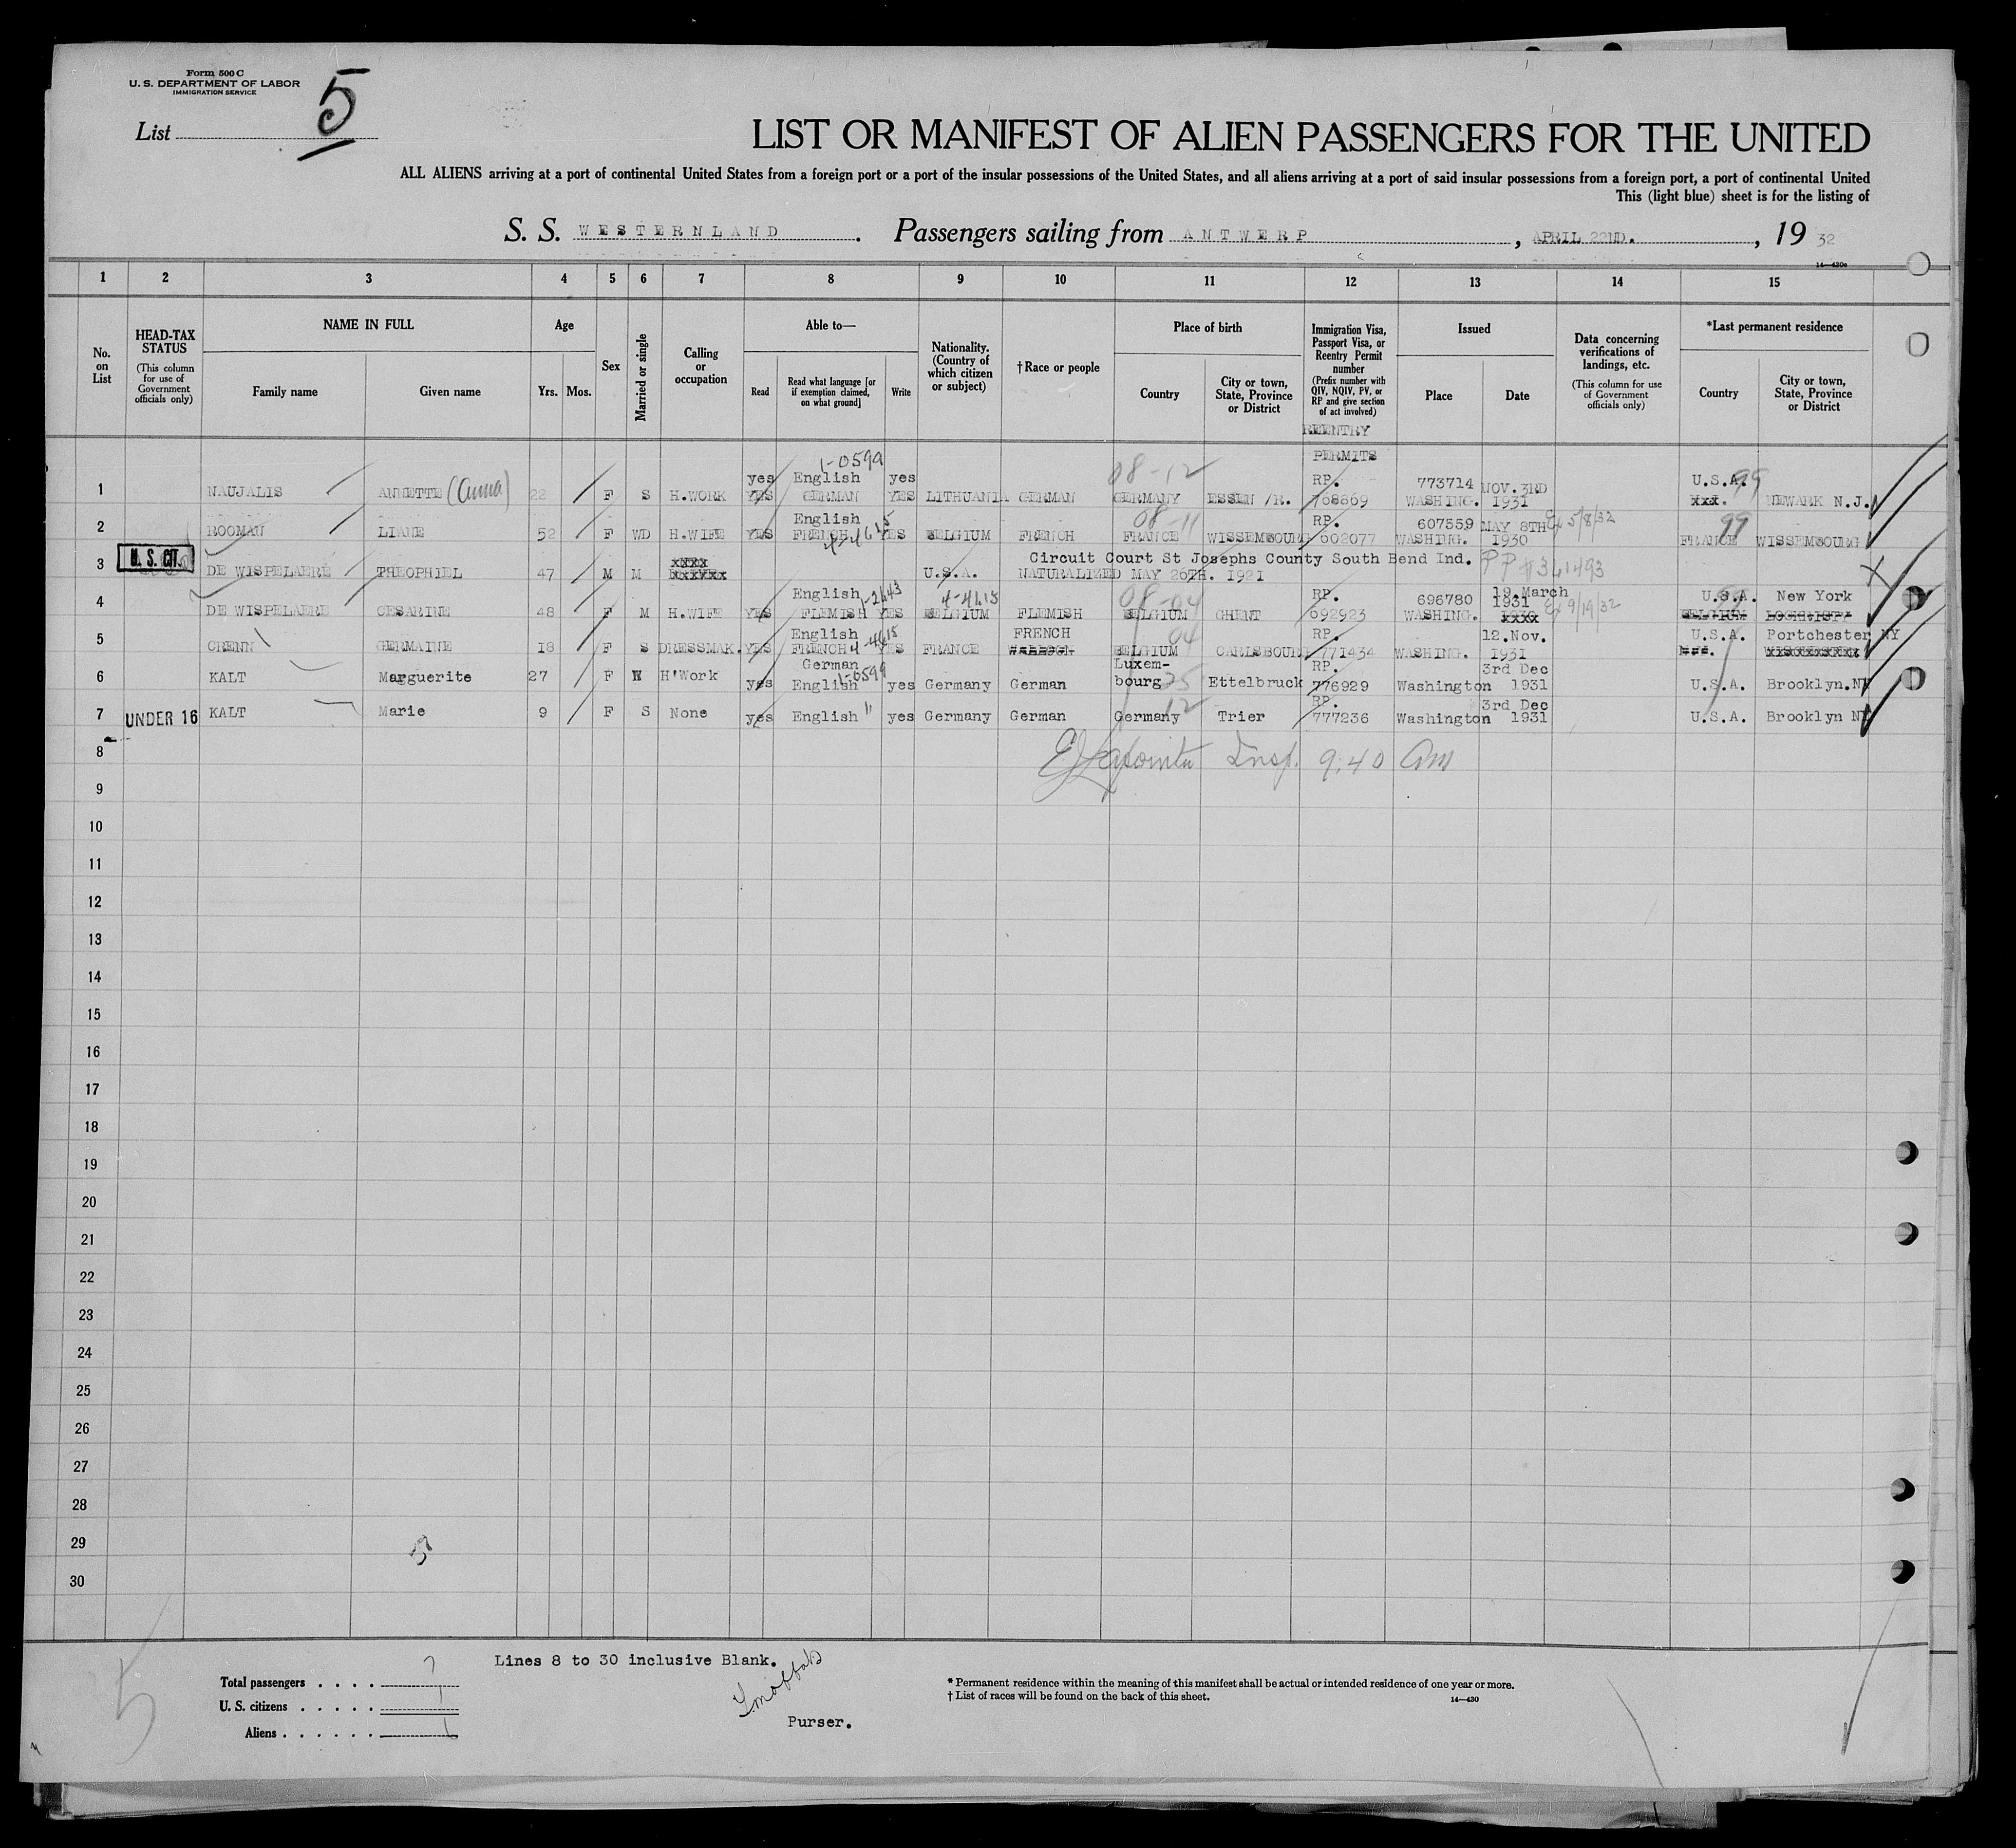 Form 500 C
U. S. DEPARTMENT OF LABOR
IMMIGRATION SERVICE
List 5
LIST OR MANIFEST OF ALIEN PASSENGERS FOR THE UNITED
ALL ALIENS arriving at a port of continental United States from a foreign port or a port of the insular possessions of the United States, and all aliens arriving at a port of said insular possessions from a foreign port, a port of continental United
This (light blue) sheet is for the listing of
S. S. WESTERNLAND. Passengers sailing from ANTWERP, APRIL 22ND., 19 32
14—430a
1 2 3 4 5 6 7 8 9 10 11 12 13 14 15
No. on List
HEAD-TAX STATUS (This column for use of Government officials only)
NAME IN FULL
Family name Given name
Age
Yrs. Mos.
Sex
Married or single
Calling or occupation
Able to—
Read Read what language [or if exemption claimed, on what ground] Write
Nationality. (Country of which citizen or subject)
†Race or people
Place of birth
Country City or town, State, Province or District
Immigration Visa, Passport Visa, or Reentry Permit number (Prefix number with QIV, NQIV, PV, or RP and give section of act involved)
REENTRY
Issued
Place Date
Data concerning verifications of landings, etc. (This column for use of Government officials only)
*Last permanent residence
Country City or town, State, Province or District
1-0599 08-12 PERMITS
yes English yes RP. 773714 NOV. 3RD U.S.A. 99
1 NAUJALIS ANNETTE (Anna) 22 F S H.WORK YES GERMAN YES LITHUANIA GERMAN GERMANY ESSEN /R. 768869 WASHING. 1931 xxx. NEWARK N.J.
English 08-11 RP. 607559 MAY 8TH Ex 5/8/32 99
2 ROOMAN LIANE 52 F WD H.WIFE YES FRENCH 4-4615 YES BELGIUM FRENCH FRANCE WISSEMBOURG 602077 WASHING. 1930 FRANCE WISSEMBOURG
U. S. CIT. xxxx Circuit Court St Josephs County South Bend Ind. PP #341493
3 DE WISPELAERE THEOPHIEL 47 M M xxxxxx U.S.A. NATURALIZED MAY 26TH. 1921
English 1-2643 4-4615 08-04 RP. 696780 19 March 1931 Ex 9/19/32 U.S.A. New York
4 DE WISPELAERE CESARINE 48 F M H.WIFE YES FLEMISH YES BELGIUM FLEMISH BELGIUM GHENT 692923 WASHING. xxxx BELGIUM LOCHRISTY
English 4-4615 FRENCH 04 RP. 12.Nov. U.S.A. Portchester NY
5 GERMAINE 18 F S DRESSMAK. YES FRENCH YES FRANCE WALLOON BELGIUM CARLSBOURG 771434 WASHING. 1931
German 1-0599 Luxem- RP. 3rd Dec
6 KALT Marguerite 27 F H'Work yes English yes Germany German bourg 25 Ettelbruck 776929 Washington 1931 U.S.A. Brooklyn.NY
12 RP. 3rd Dec
7 UNDER 16 KALT Marie 9 F S None yes English " yes Germany German Germany Trier 777236 Washington 1931 U.S.A. Brooklyn NY
8 Insp. 9:40 am
9
10
11
12
13
14
15
16
17
18
19
20
21
22
23
24
25
26
27
28
29
30
Lines 8 to 30 inclusive Blank.
Total passengers . . . . 7
U. S. citizens . . . . . 1
Aliens . . . . . . 6
Purser.
* Permanent residence within the meaning of this manifest shall be actual or intended residence of one year or more.
† List of races will be found on the back of this sheet. 14—430
5